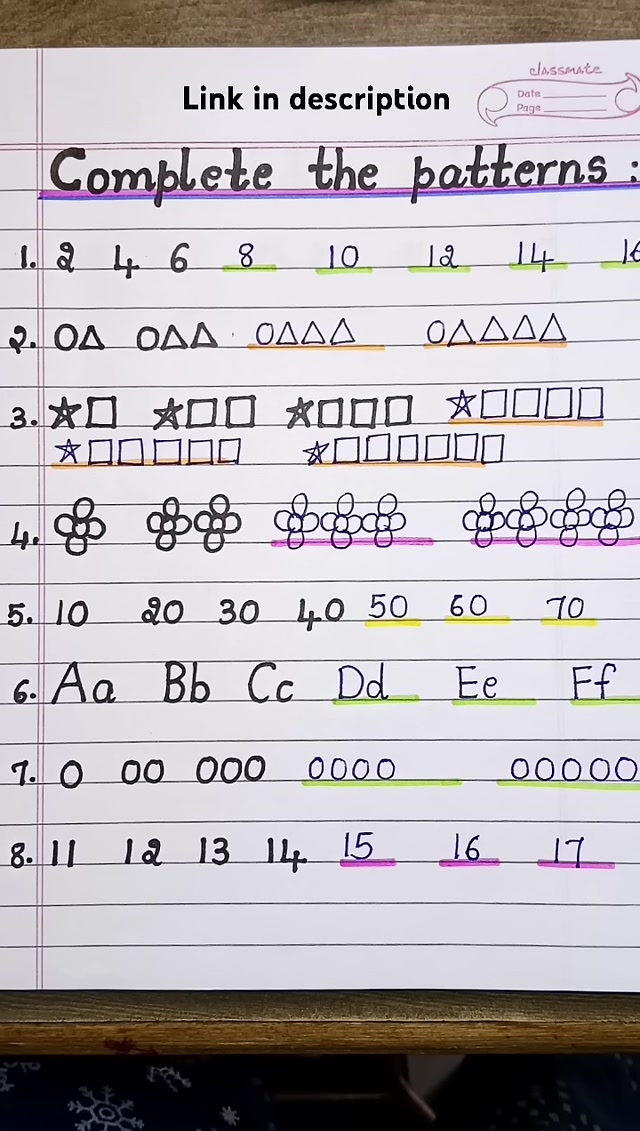 classmate
Date
Page
Link in description
Complete the patterns :
1. 2 4 6 8 10 12 14
2. O△ O△△ O△△△ O△△△△
3. ☆□ ☆□□ ☆□□□ ☆□□□□
☆□□□□□ ☆□□□□□□
4.
5. 10 20 30 40 50 60 70
6. Aa Bb Cc Dd Ee Ff
7. O OO OOO OOOO OOOOO
8. 11 12 13 14 15 16 17